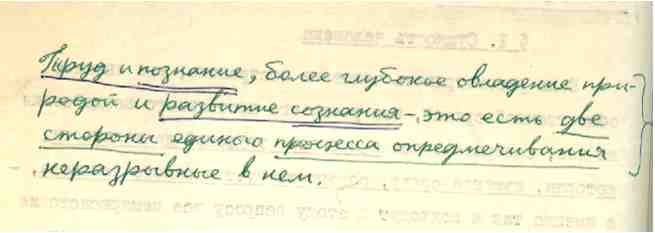 Труд и познание, более глубокое овладение при-
родой и развитие сознания – это есть две
стороны единого процесса опредмечивания
неразрывные в нем.